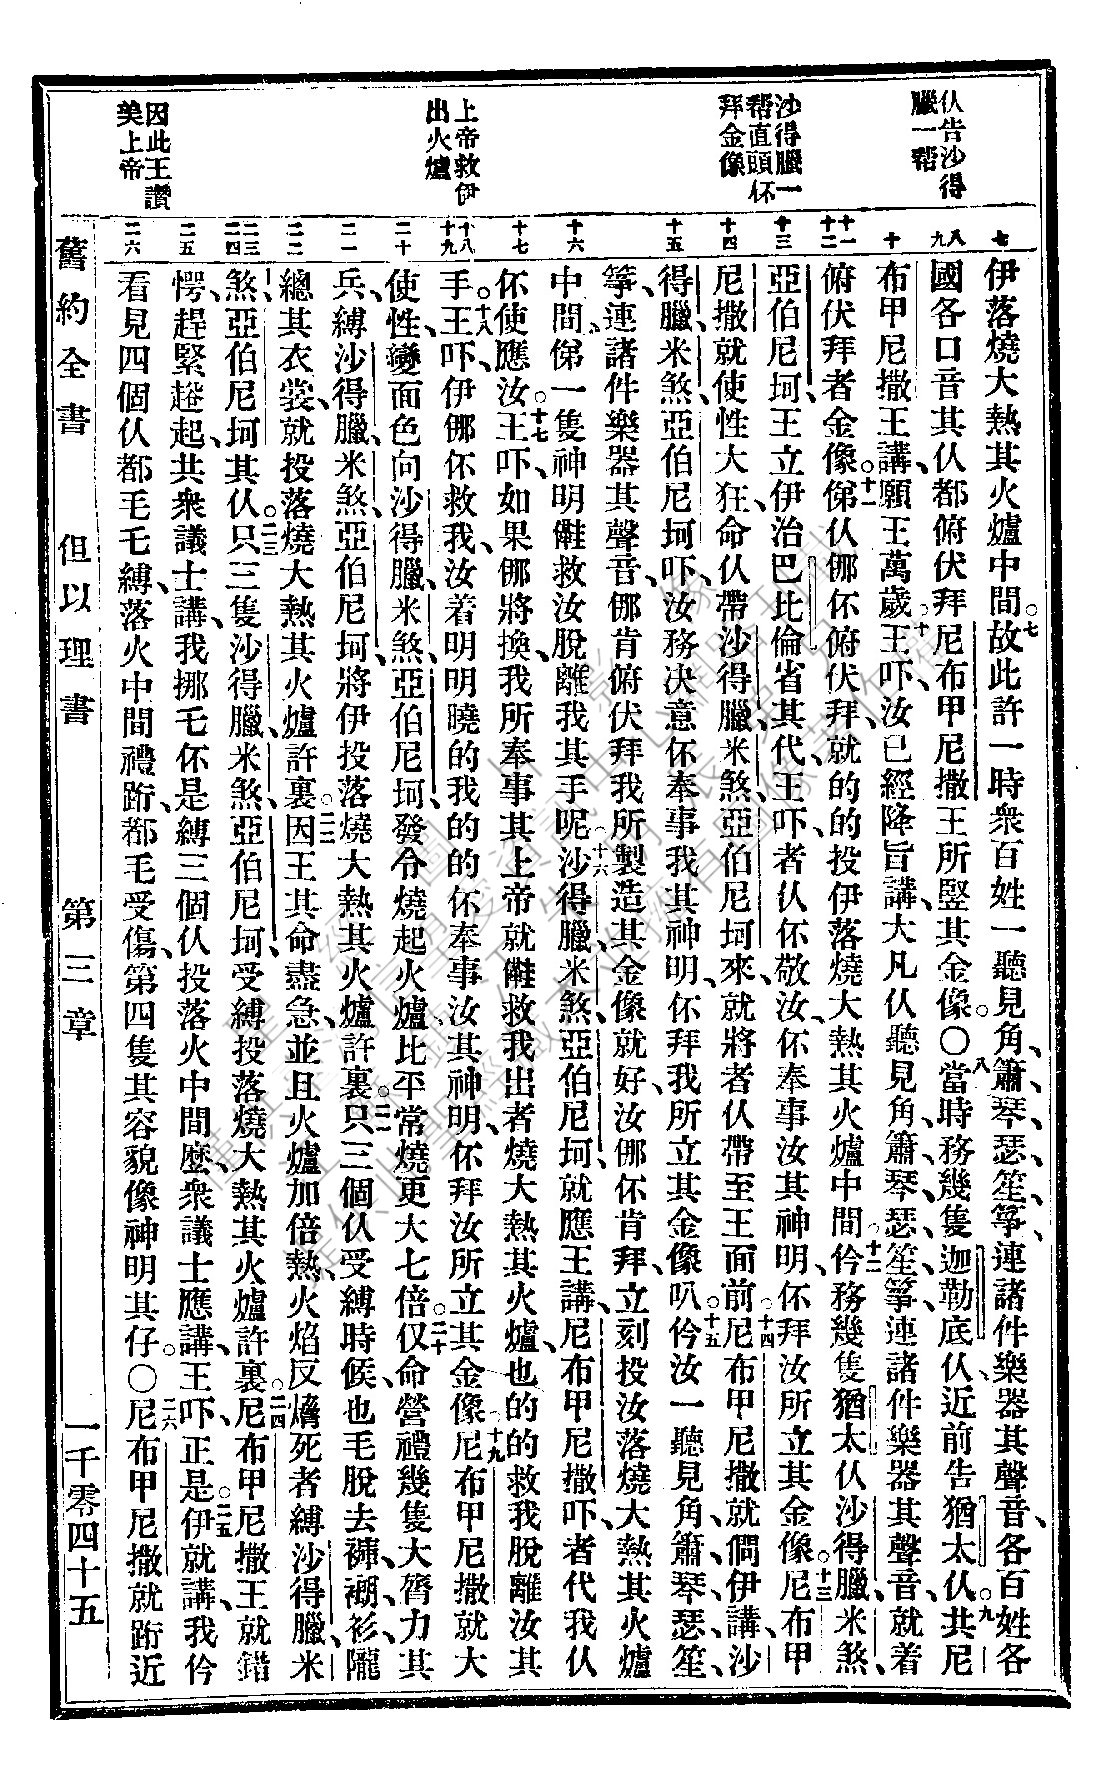 仈告沙得
臘一幫
沙得臘一
幫直頭伓
拜金像
上帝救伊
出火爐
因此王讚
美上帝
七
八
九
十
十一
十二
十三
十四
十五
十六
十七
十八
十九
二十
二一
二二
二三
二四
二五
二六
伊落燒大熱其火爐中間。七故此許一時衆百姓一聽見角、簫、琴、瑟、笙、箏、連諸件樂器其聲音、各百姓各
國各口音其仈都俯伏拜尼布甲尼撒王所竪其金像。〇八當時務幾隻迦勒底仈、近前告猶太仈。九其尼
布甲尼撒王講、願王萬歲。十王吓、汝已經降旨講、大凡仈聽見角、簫、琴、瑟、笙、箏、連諸件樂器其聲音、就着
俯伏拜者金像。十一俤仈倻伓俯伏拜、就的的投伊落燒大熱其火爐中間。十二仱務幾隻猶太仈沙得臘、米煞、
亞伯尼坷、王立伊治巴比倫省其代、王吓、者仈伓敬汝、伓奉事汝其神明、伓拜汝所立其金像。十三尼布甲
尼撒就使性大狂、命仈帶沙得臘、米煞、亞伯尼坷來、就將者仈帶至王面前。十四尼布甲尼撒就僩伊講、沙
得臘、米煞、亞伯尼坷吓、汝務決意伓奉事我其神明、伓拜我所立其金像叭。十五仱汝一聽見角、簫、琴、瑟、笙、
箏、連諸件樂器其聲音、倻肯俯伏拜我所製造其金像就好、汝倻伓肯拜、立刻投汝落燒大熱其火爐
中間、俤一隻神明𠆧救汝脫離我其手呢。十六沙得臘、米煞、亞伯尼坷、就應王講、尼布甲尼撒吓、者代我仈
伓使應汝。十七王吓、如果倻將換、我所奉事其上帝就𠆧救我出者燒大熱其火爐、也的的救我脫離汝其
手。十八王吓、伊倻伓救我、汝着明明曉的我的的伓奉事汝其神明、伓拜汝所立其金像。十九尼布甲尼撒就大
使性、變面色向沙得臘、米煞、亞伯尼坷、發令燒起火爐比平常燒更大七倍。二十仅命營禮幾隻大膂力其
兵、縛沙得臘、米煞、亞伯尼坷、將伊投落燒大熱其火爐許裏。二一只三個仈受縛時候、也毛脫去褲、裀、衫、隴
總其衣裳、就投落燒大熱其火爐許裏。二二因王其命盡急、並且火爐加倍熱、火焰反燐死者縛沙得臘、米
煞、亞伯尼坷其仈。二三只三隻沙得臘、米煞、亞伯尼坷、受縛投落燒大熱其火爐許裏。二四尼布甲尼撒王就錯
愕、趕緊𨃃起、共衆議士講、我挪乇伓是縛三個仈投落火中間麽、衆議士應講、王吓、正是。二五伊就講、我仱
看見四個仈都毛乇縛、落火中間禮跉、都毛受傷、第四隻其容貌像神明其仔。〇二六尼布甲尼撒就跉近
舊約全書 但以理書 第三章 一千零四十五